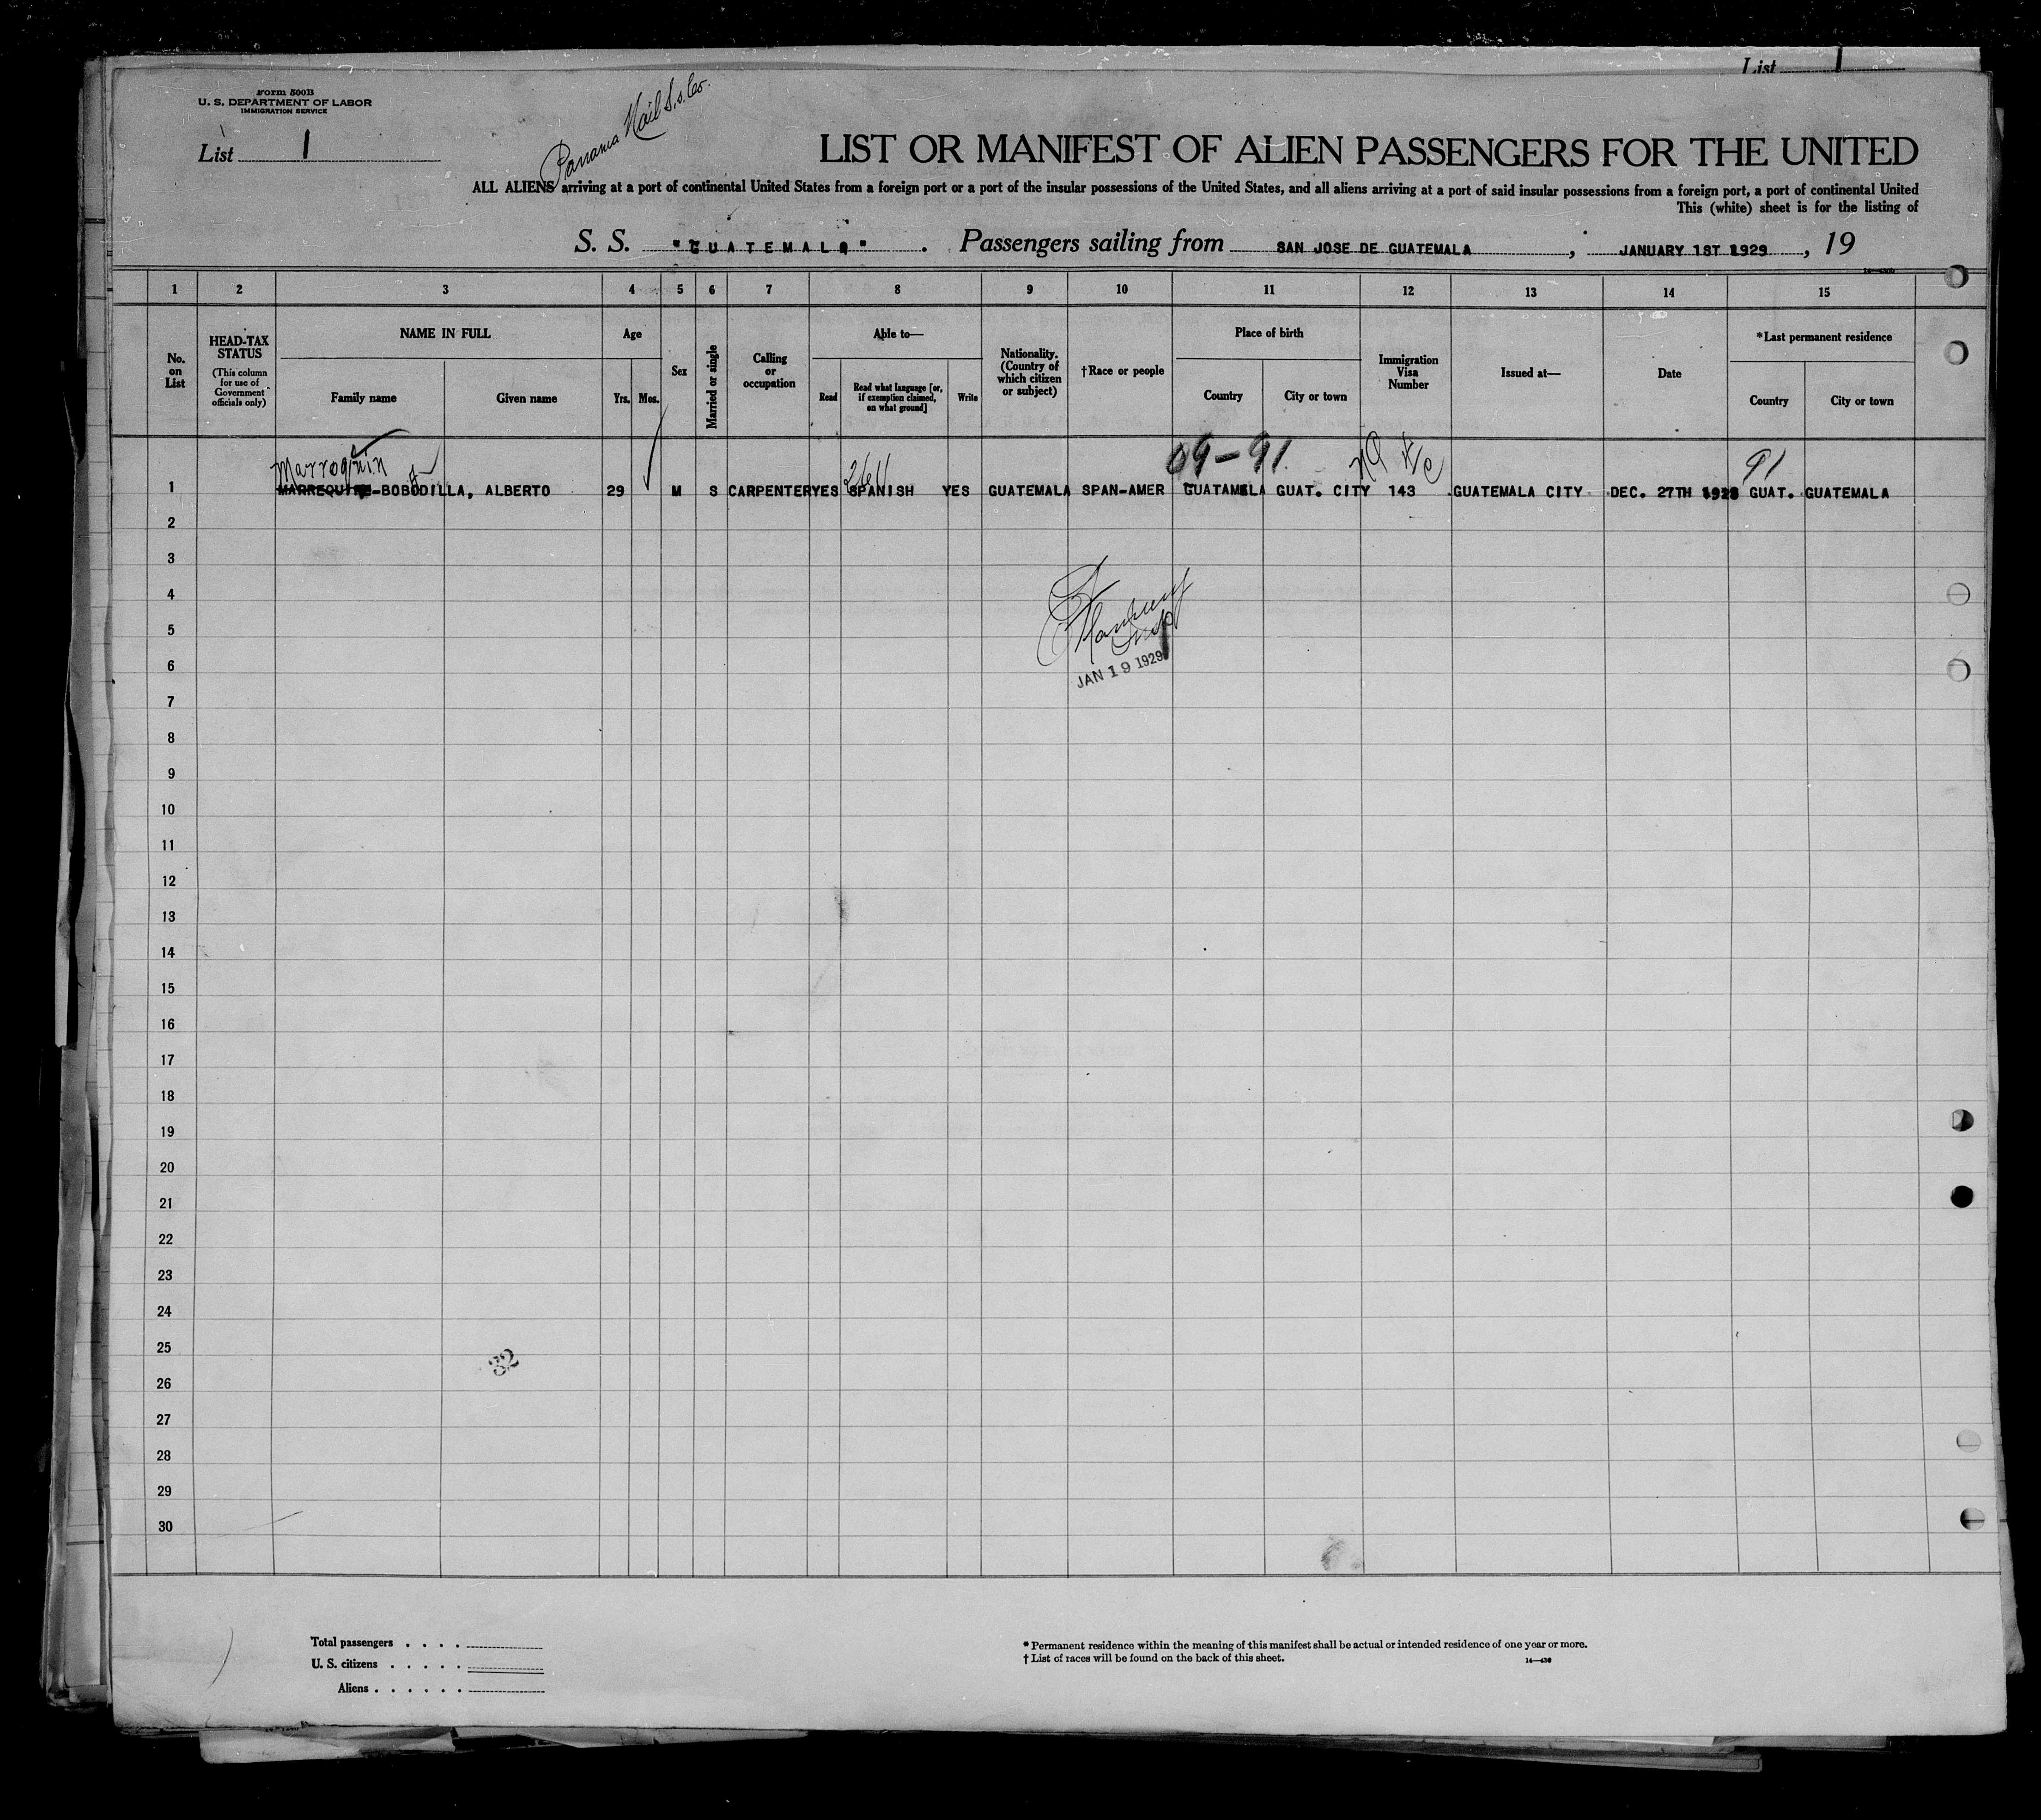 List 1
Form 500B
U. S. DEPARTMENT OF LABOR
IMMIGRATION SERVICE
List 1
Panama Mail S.S. Co.
LIST OR MANIFEST OF ALIEN PASSENGERS FOR THE UNITED
ALL ALIENS arriving at a port of continental United States from a foreign port or a port of the insular possessions of the United States, and all aliens arriving at a port of said insular possessions from a foreign port, a port of continental United
This (white) sheet is for the listing of
S. S. "GUATEMALA". Passengers sailing from SAN JOSE DE GUATEMALA, JANUARY 1ST 1929, 19
1 2 3 4 5 6 7 8 9 10 11 12 13 14 15
No. on List
HEAD-TAX STATUS
(This column for use of Government officials only)
NAME IN FULL
Family name Given name
Age
Yrs. Mos.
Sex
Married or single
Calling or occupation
Able to—
Read Read what language [or, if exemption claimed, on what ground] Write
Nationality. (Country of which citizen or subject)
†Race or people
Place of birth
Country City or town
Immigration Visa Number
Issued at—
Date
*Last permanent residence
Country City or town
Marroquin 09-91 91
1 -BOBODILLA, ALBERTO 29 M S CARPENTER YES SPANISH YES GUATEMALA SPAN-AMER GUATAMELA GUAT. CITY 143 GUATEMALA CITY DEC. 27TH 1928 GUAT. GUATEMALA
2
3
4
5
6
JAN 19 1929
7
8
9
10
11
12
13
14
15
16
17
18
19
20
21
22
23
24
25
32
26
27
28
29
30
Total passengers . . . .
U. S. citizens . . . . .
Aliens . . . . . .
* Permanent residence within the meaning of this manifest shall be actual or intended residence of one year or more.
† List of races will be found on the back of this sheet.